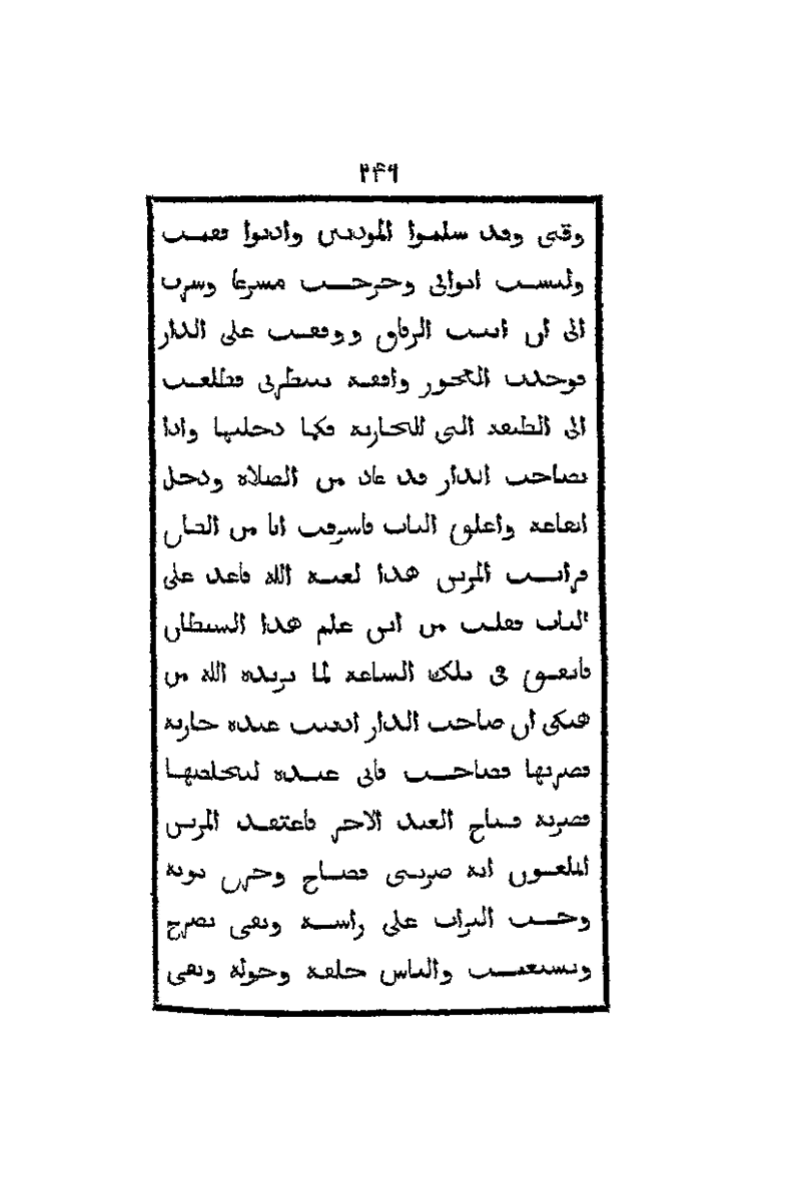 ٢٤٩
وقتى وقد سلموا الموذنين واذنوا فقمت
ولبست اثوابى وخرجت مسرعا وسرت
الى ان اتيت الزقاق ووقفت على الدار
فوجدت العجوز واقفه تنتظرنى فطلعت
الى الطبقه التى للجاريه فكما دخلتها واذا
بصاحب الدار قد عاد من الصلاه ودخل
القاعه واغلق الباب فاشرفت انا من الطاق
فرايت المزين هذا لعنه الله قاعد على
الباب فقلت من اين علم هذا الشيطان
فاتفق فى تلك الساعه لما يريده الله من
هتكى ان صاحب الدار اذنبت عنده جاريه
فضربها فصاحت فاتى عبده ليخلصها
فضربه فصاح العبد الاخر فاعتقد المزين
الملعون انه ضربنى فصاح وخرق ثوبه
وحث التراب على راسه وبقى يصرخ
ويستغيث والناس خلفه وحوله وبقى